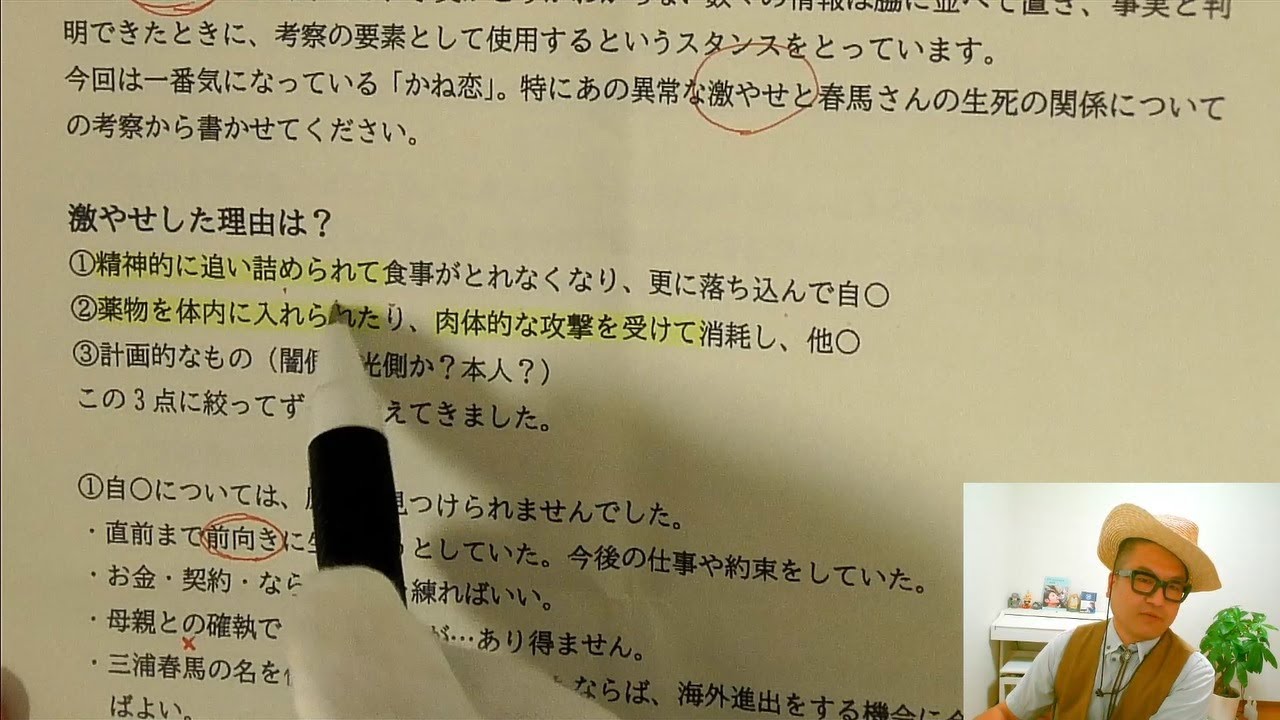 数々の情報は脇に並べて置き、事実と判
明できたときに、考察の要素として使用するというスタンスをとっています。
今回は一番気になっている「かね恋」。特にあの異常な激やせと春馬さんの生死の関係について
の考察から書かせてください。
激やせした理由は？
①精神的に追い詰められて食事がとれなくなり、更に落ち込んで自〇
②薬物を体内に入れられたり、肉体的な攻撃を受けて消耗し、他〇
③計画的なもの（闇側 光側か？本人？）
この3点に絞ってず えてきました。
①自〇については、 見つけられませんでした。
・直前まで前向きに うとしていた。今後の仕事や約束をしていた。
・お金・契約・なら 練ればいい。
・母親との確執で が…あり得ません。
・三浦春馬の名を ならば、海外進出をする機会に
ばよい。